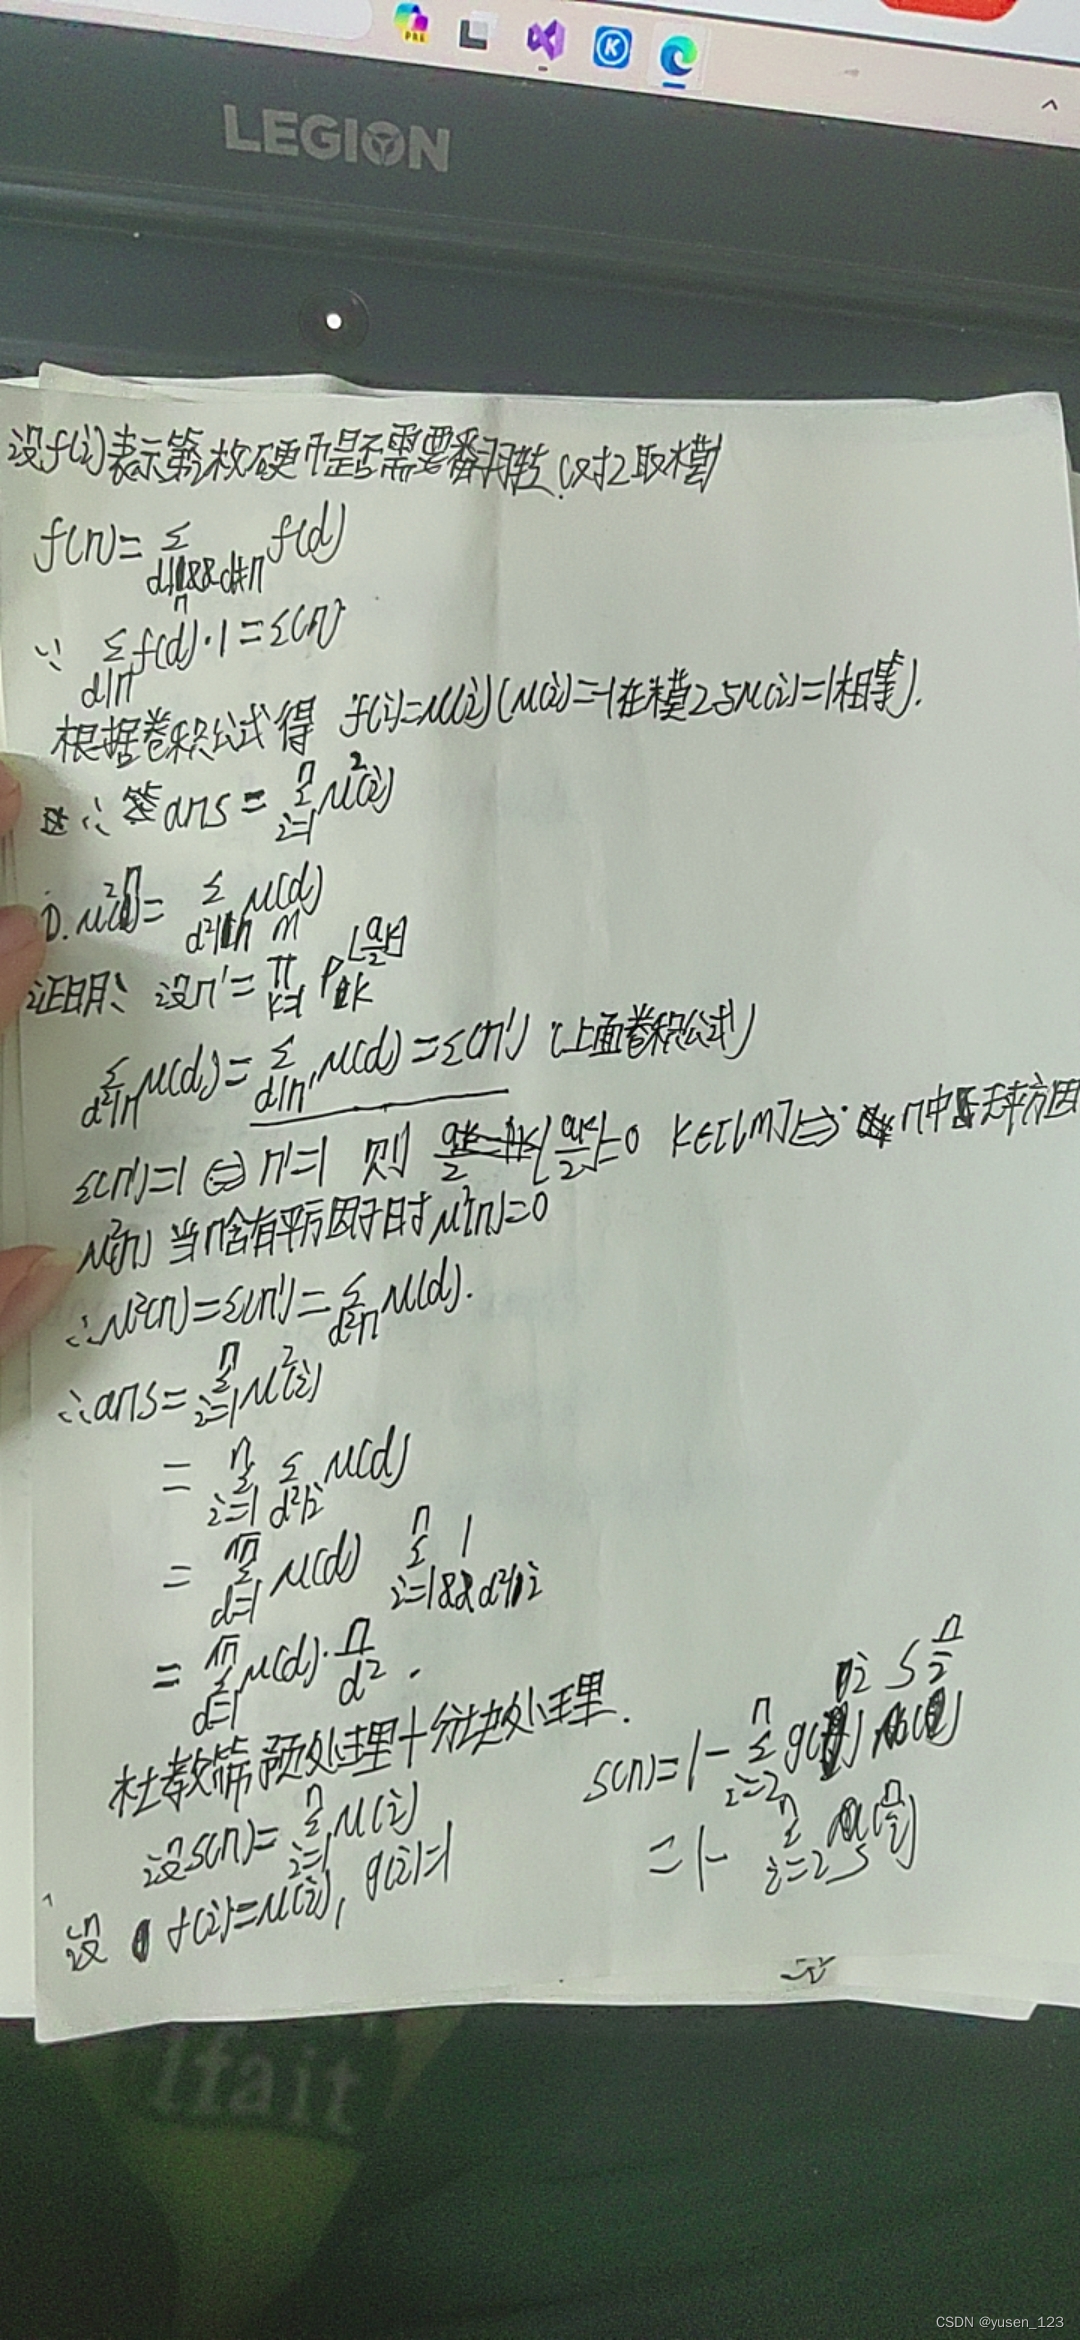 PRE
K
LEGION
设f(i)表示第i枚硬币是否需要翻转.(对2取模)
f(n)= Σ_{d|n&&d≠n} f(d)
∵ Σ_{d|n} f(d)·1=ε(n)
根据卷积公式得 f(i)=μ(i)(μ(i)=-1在模2与μ(i)=1相等).
∴ ans= Σ_{i=1}^{n} μ²(i)
①. μ²(n)= Σ_{d²|n} μ(d)
证明: 设n'= Π_{k=1}^{m} P_k^{[a_k/2]}
Σ_{d²|n} μ(d)= Σ_{d|n'} μ(d)=ε(n') (上面卷积公式)
ε(n')=1 ⇔ n'=1 则 [a_k/2]=0 k∈[1,m] ⇔ n中无平方因
μ²(n) 当n含有平方因子时 μ²(n)=0
∴μ²(n)=ε(n')= Σ_{d²|n} μ(d).
∴ans= Σ_{i=1}^{n} μ²(i)
= Σ_{i=1}^{n} Σ_{d²|i} μ(d)
= Σ_{d=1}^{√n} μ(d) Σ_{i=1&&d²|i}^{n} 1
= Σ_{d=1}^{√n} μ(d)·n/d².
杜教筛预处理+分块处理.
设s(n)= Σ_{i=1}^{n} μ(i)
设 f(i)=μ(i), g(i)=1
s(n)=1- Σ_{i=2}^{n} g(i) S(n/i)
=1- Σ_{i=2}^{n} S(n/i)
lfait
CSDN @yusen_123